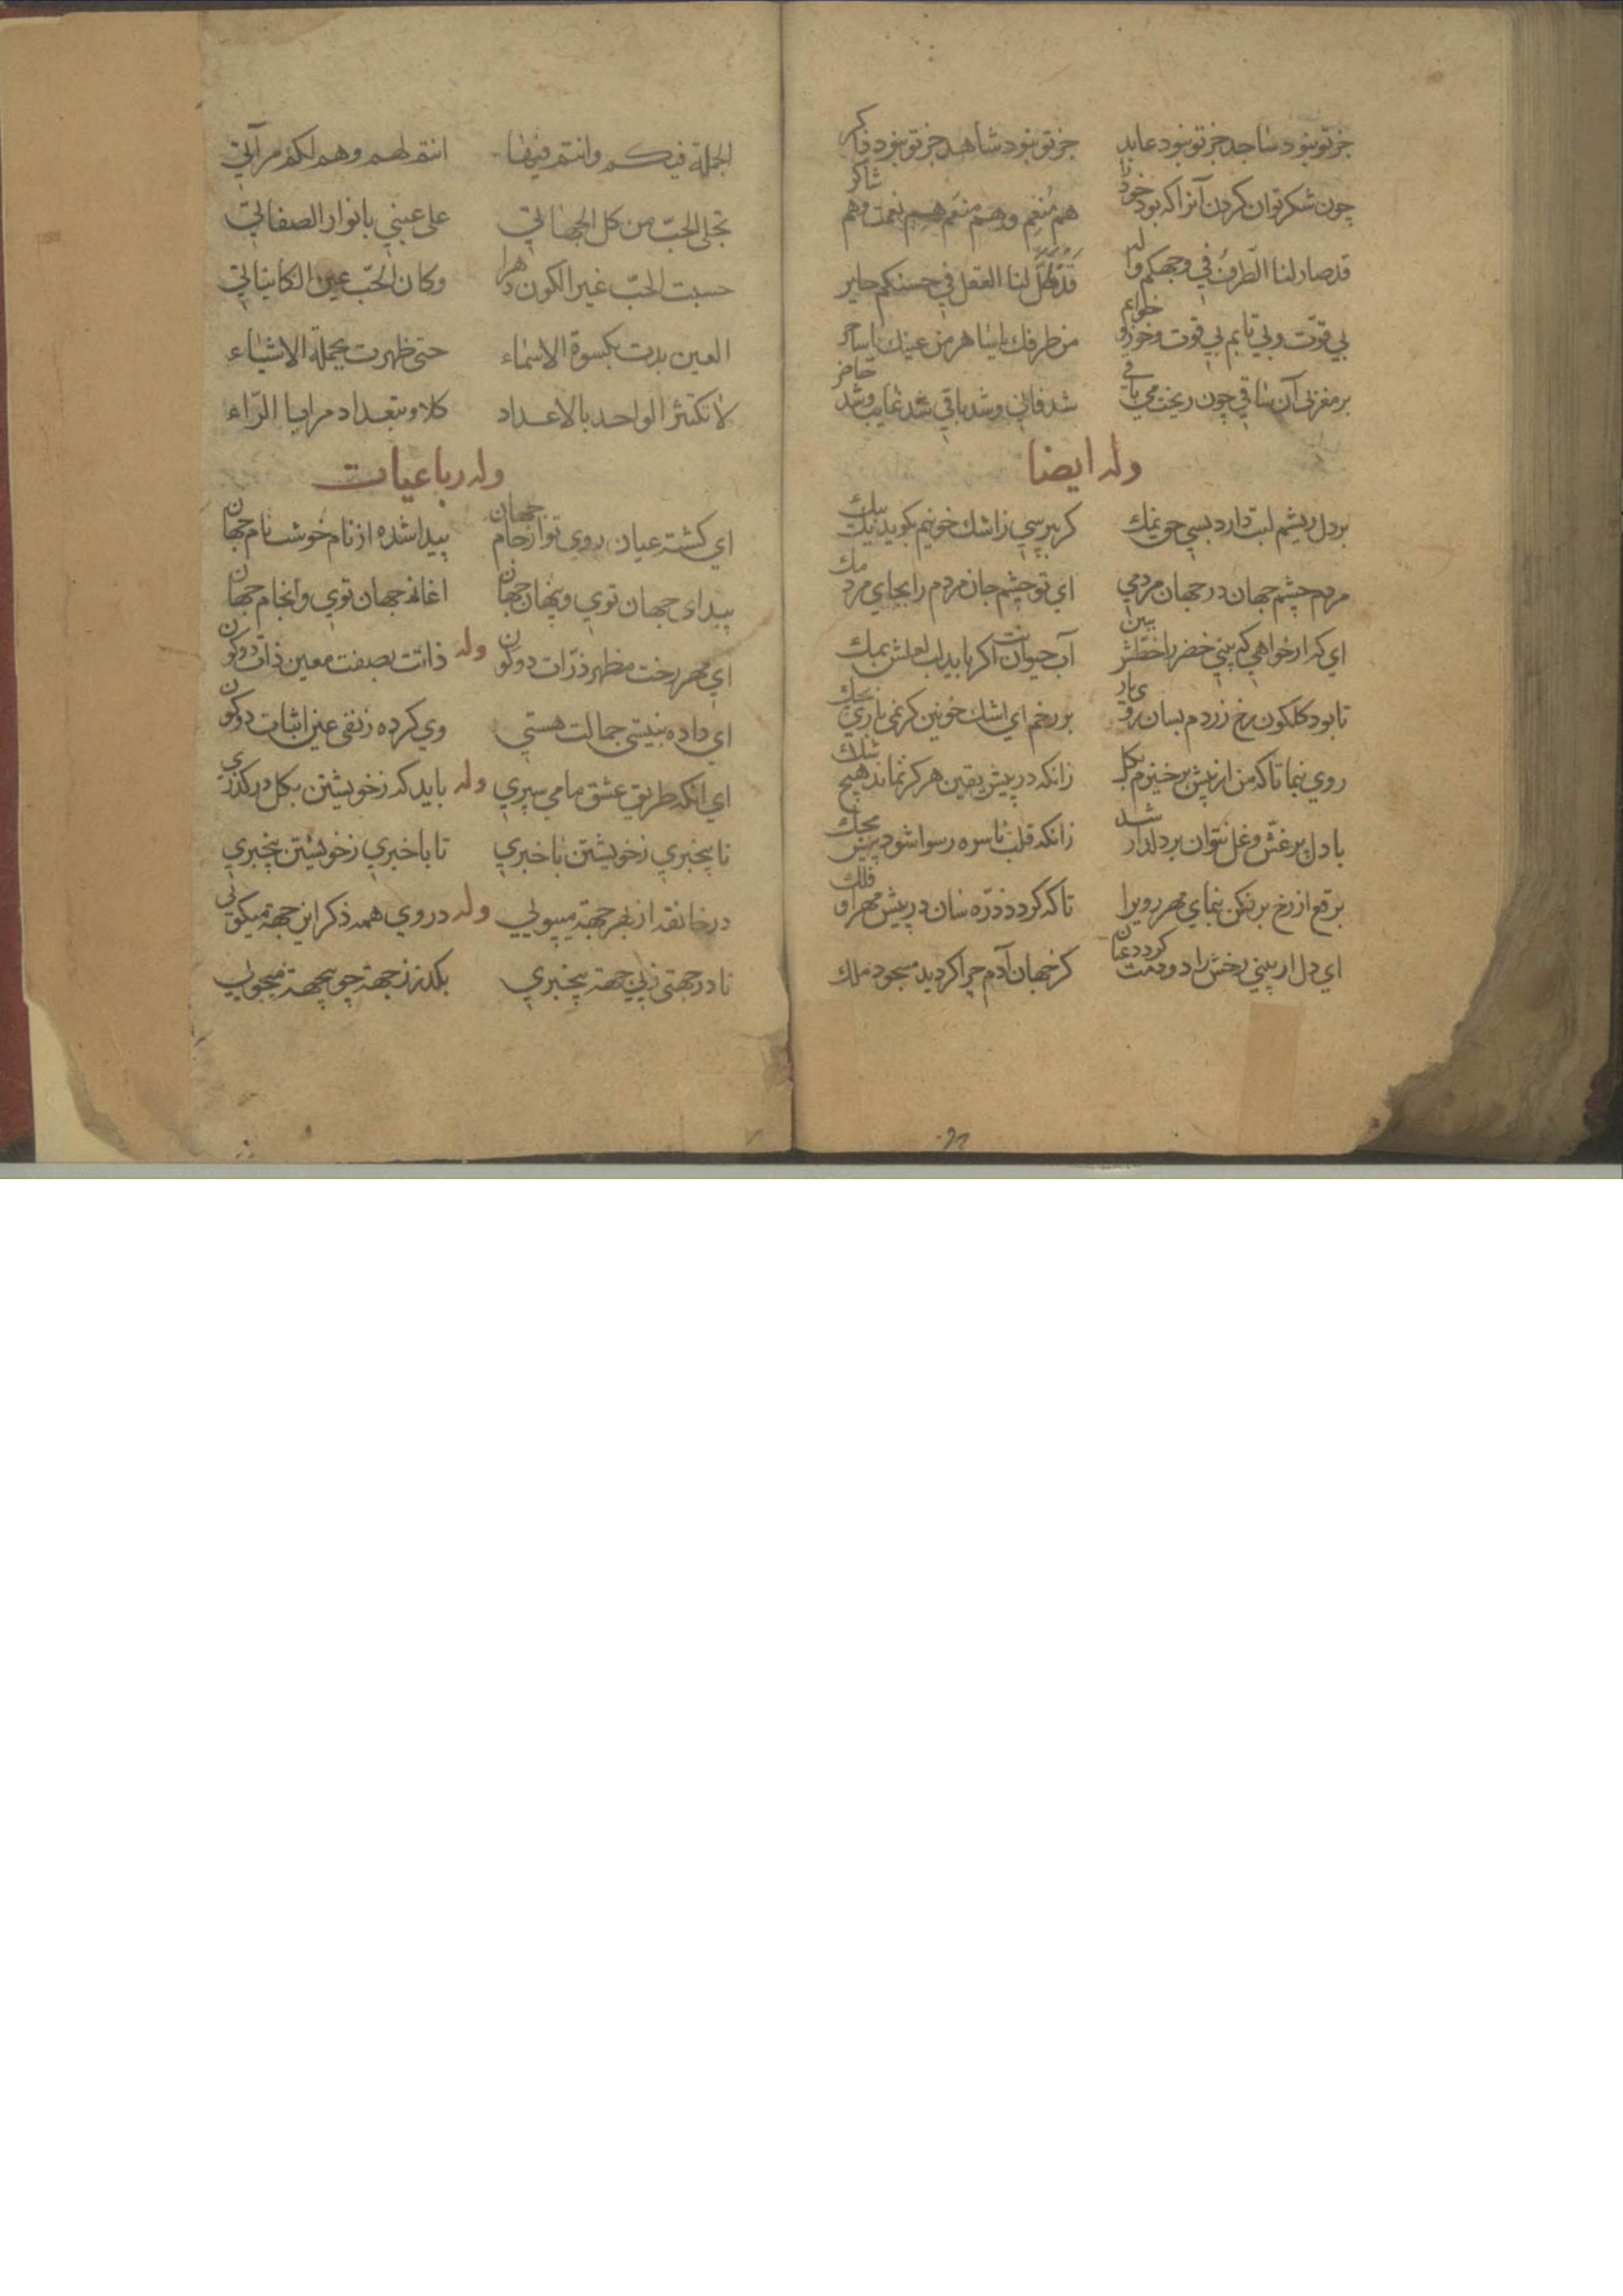 جز تو نبود ساجد جز تو نبود عابد جز تو نبود شاهد جز تو نبود ذاکر
چون شکر توان کردن آنرا که بود خود را هم مُنعِم وهم منعَم هم نعمت وهم شاکر
قد صار لنا الطّرفُ في وجهکم واله قد ظلّ لنا العقل في حسنکم حایر
بي قوّت وبي تابم بي قوت وخود خوابم من طرفك یا ساهر من عینك یا ساحر
بر مغربی آن ساقي چون ریخت مي باقي شد فاني وشد باقي شد غایب وشد حاضر
وله ایضا
بر دل ریشم لبت دارد بسي حق نمك کر بپرسي ز اشك خونینم بکوید یك بیك
مردم چشم جهان در جهان مردمي اي تو چشم جان مردم را بجاي مردمك
اي که ار خواهي که بیني خضر را خطش ببین آب حیوانت اکر باید لب لعلش بمك
تا بود کلکون رخ زردم بسان روي یار بر رخم اي اشك خونین کر نمي باري بچك
روي بنما تا که من از پیش برخیزم بکل زانکه در پیش یقین هرکز نماند هیچ شك
با دل پر غشّ وغل نتوان بر دلدار شد زانکه قلب ناسره رسوا شود پیش محك
برقع از رخ برفکن بنماي مهر رویرا تا که کردد ذرّه سان در پیش مهر او فلك
اي دل ار بیني رخش را دو دمت کردد عیان کز چهان آدم چرا کردید مسجود ملك
الجملة فیکم وانتم فیها انتم لهم وهم لکم مرآتي
تجلی الحبّ من کل الجهاتي علی عیني بانوار الصفاتي
حسبت الحبّ غیر الکون دهرا وکان الحبّ عین الکائناتي
العین بدت بکسوة الاسماء حتی ظهرت بجملة الاشیاء
لا تکثر الواحد بالاعداد کلا وبتعداد مرایا الرّاء
وله رباعیات
اي کشته عیان روی تو از جام جهان پیدا شده از نام خوشت نام جهان
پیدای جهان توي وپنهان جهان اغاز جهان توي وانجام جهان
اي مهر رخت مظهر ذرّات دو کون وله ذاتت بصفت معین ذات دو کون
اي داده بنیستی جمالت هستي وي کرده ز نفی عین اثبات دو کون
اي انکه طریق عشق ما مي سپري وله باید که ز خویشتن بکل درکذري
تا بیخبري ز خویشتن باخبري تا باخبري ز خویشتن بیخبري
در خانقه از بهر جهة میپولي وله در روي همه ذکر این جهة میکوئي
تا در جهتی ز بي جهة بیخبري بکذر ز جهة چو بیجهة میجوئي